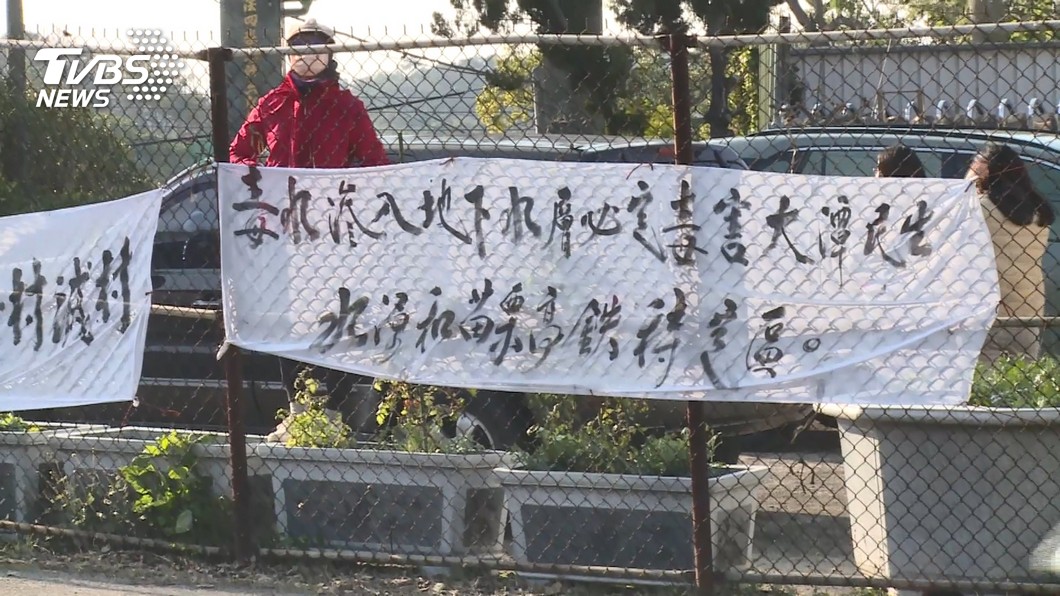 TVBS
NEWS
毒水滲入地下水層必定毒害大潭民生
水和苗栗高鐵特定區。
村滅村